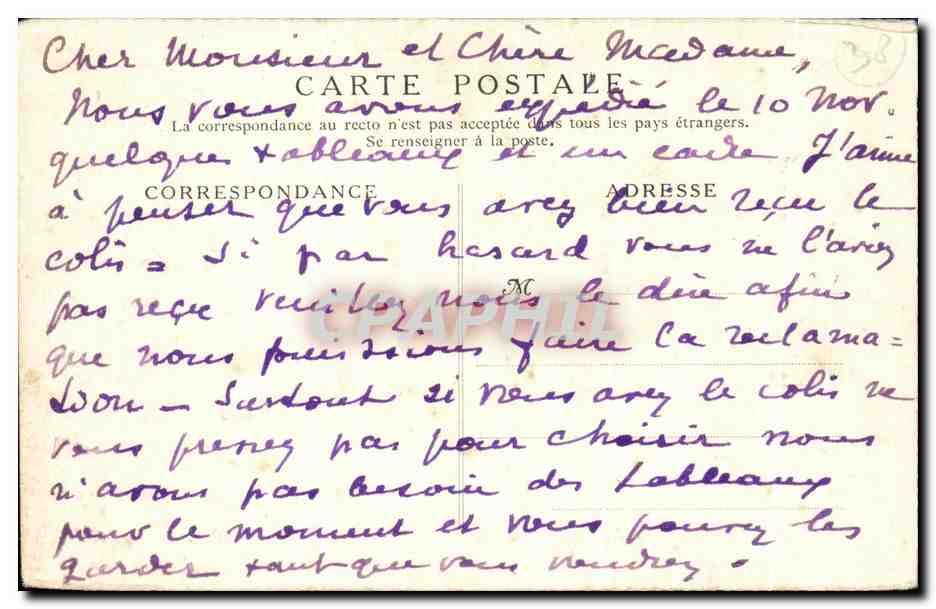 Cher Monsieur et Chère Madame,
CARTE POSTALE
Nous vous avons expédié le 10 Nov.
La correspondance au recto n'est pas acceptée dans tous les pays étrangers.
Se renseigner à la poste.
quelques tableaux et un cadre. J'aime
CORRESPONDANCE
ADRESSE
à penser que vous avez bien reçu le
colis = Si par hasard vous ne l'aviez
M
pas reçu veuillez nous le dire afin
CPAPHIL
que nous puissions faire la reclama=
tion – Surtout si vous avez le colis ne
vous pressez pas pour choisir nous
n'avons pas besoin des tableaux
pour le moment et vous pouvez les
garder tant que vous voudrez.